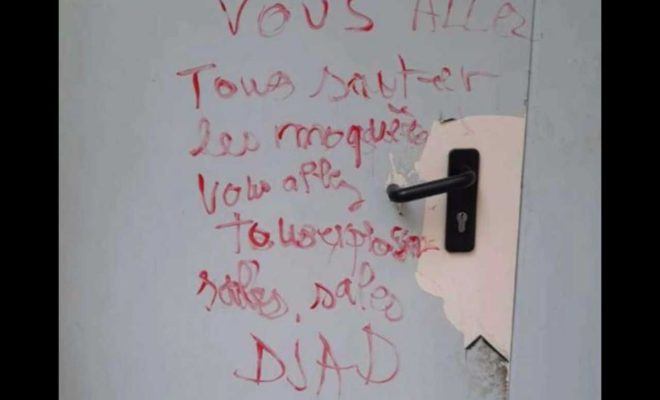 VOUS ALLEZ
Tous sauter
les moquèes
Vous allez
tous exploser
sales, sales
DJAD